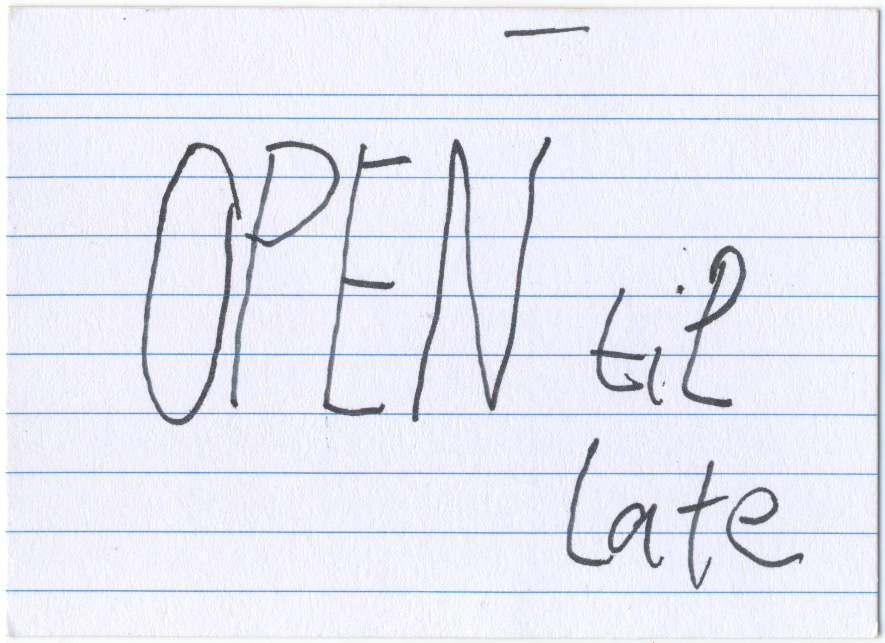 OPEN til
Late